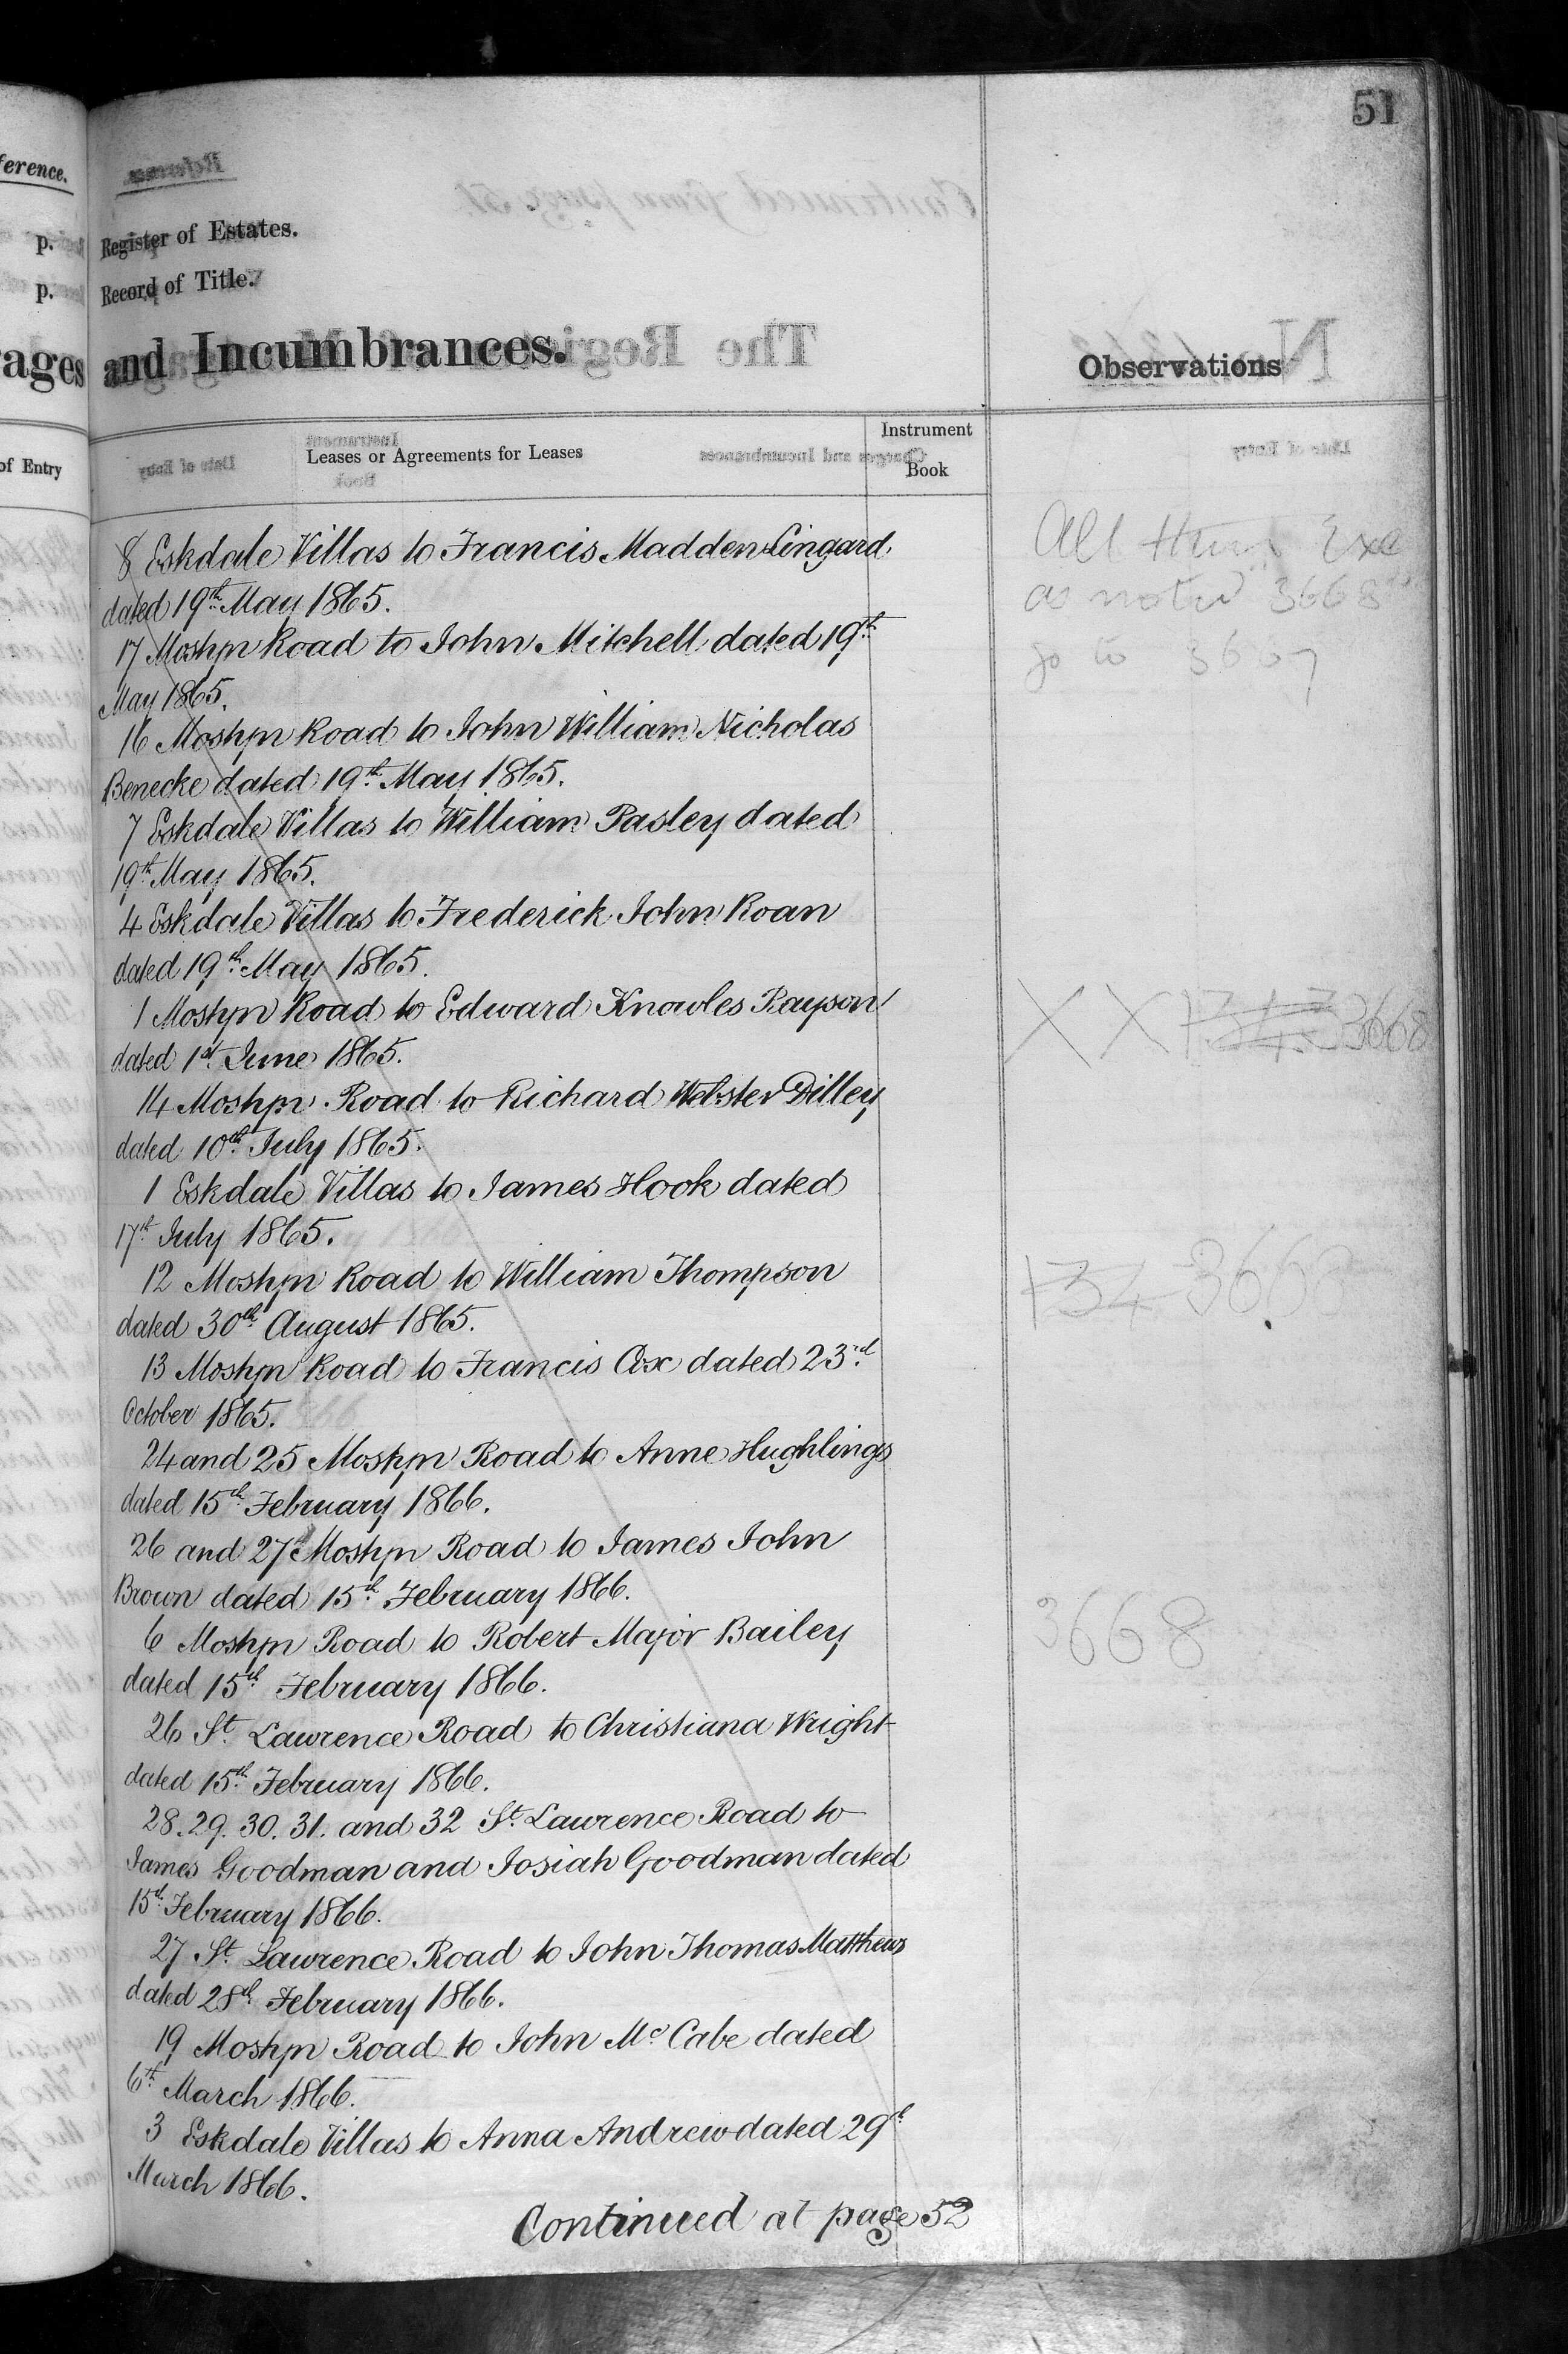 51
ference.
p.
Register of Estates.
p.
Record of Title.
ages and Incumbrances.
Observations
of Entry
Leases or Agreements for Leases
Instrument
Book
8 Eskdale Villas to Francis Madden Lingard
dated 19th May 1865.
17 Mostyn Road to John Mitchell dated 19th
May 1865.
16 Mostyn Road to John William Nicholas
Benecke dated 19th May 1865.
7 Eskdale Villas to William Pasley dated
19th May 1865.
4 Eskdale Villas to Frederick John Roan
dated 19th May 1865.
1 Mostyn Road to Edward Knowles Rayson
dated 1st June 1865.
14 Mostyn Road to Richard Webster Dilley
dated 10th July 1865.
1 Eskdale Villas to James Hook dated
17th July 1865.
12 Mostyn Road to William Thompson
dated 30th August 1865.
13 Mostyn Road to Francis Cox dated 23rd
October 1865.
24 and 25 Mostyn Road to Anne Hughlings
dated 15th February 1866.
26 and 27 Mostyn Road to James John
Brown dated 15th February 1866.
6 Mostyn Road to Robert Major Bailey
dated 15th February 1866.
26 St. Lawrence Road to Christiana Wright
dated 15th February 1866.
28. 29. 30. 31. and 32 St. Lawrence Road to
James Goodman and Josiah Goodman dated
15th February 1866.
27 St. Lawrence Road to John Thomas Matthews
dated 28th February 1866.
19 Mostyn Road to John Mc Cabe dated
6th March 1866.
3 Eskdale Villas to Anna Andrew dated 29th
March 1866.
Continued at page 52
All
as noted 3668
go to 3667
X X 3668
134 3668
3668